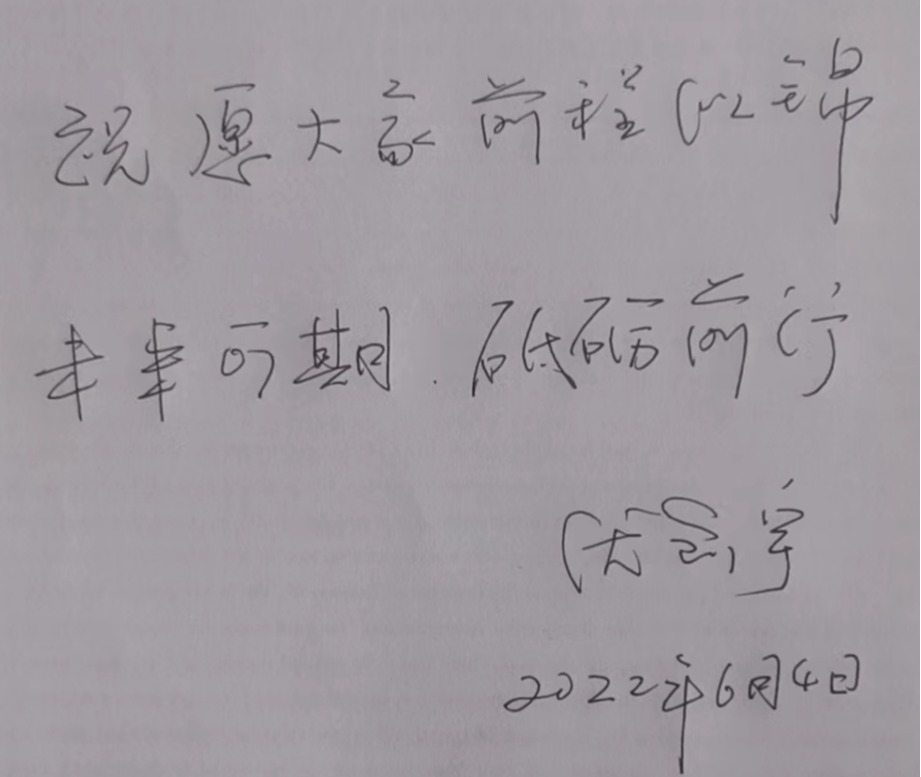 祝愿大家前程似锦
年年可期.砥砺前行
宇
2022年6月4日